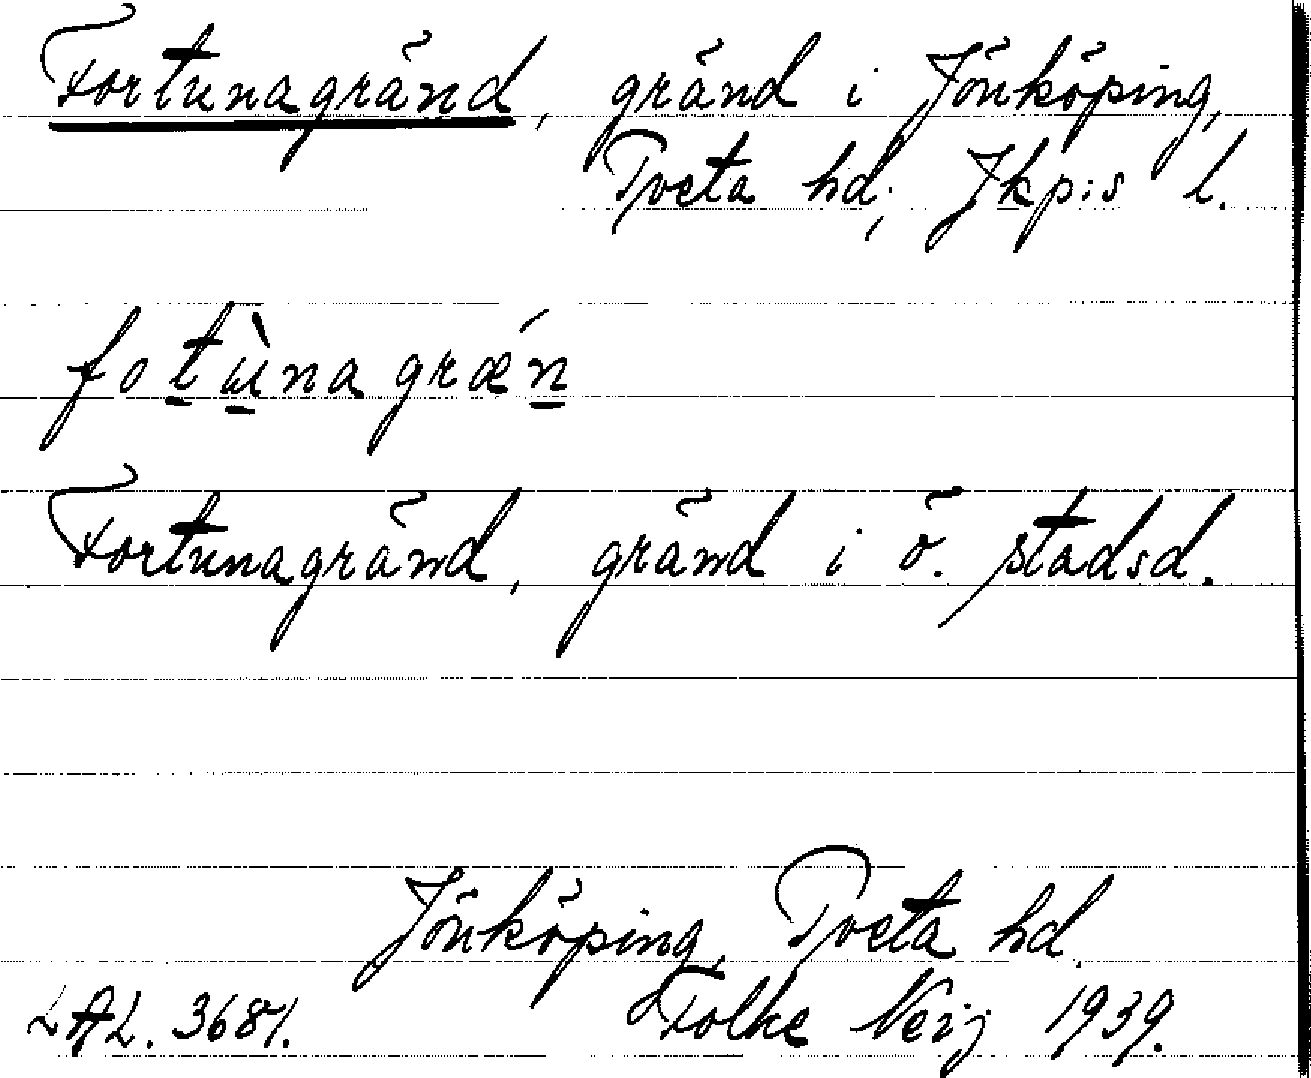 Fortunagränd, gränd i Jönköping,
Tveta hd, Jkp:s l.
fotùnagræ´n
Fortunagränd, gränd i ö. stadsd.
Jönköping, Tveta hd.
LAL. 3681. Folke Neij 1939.